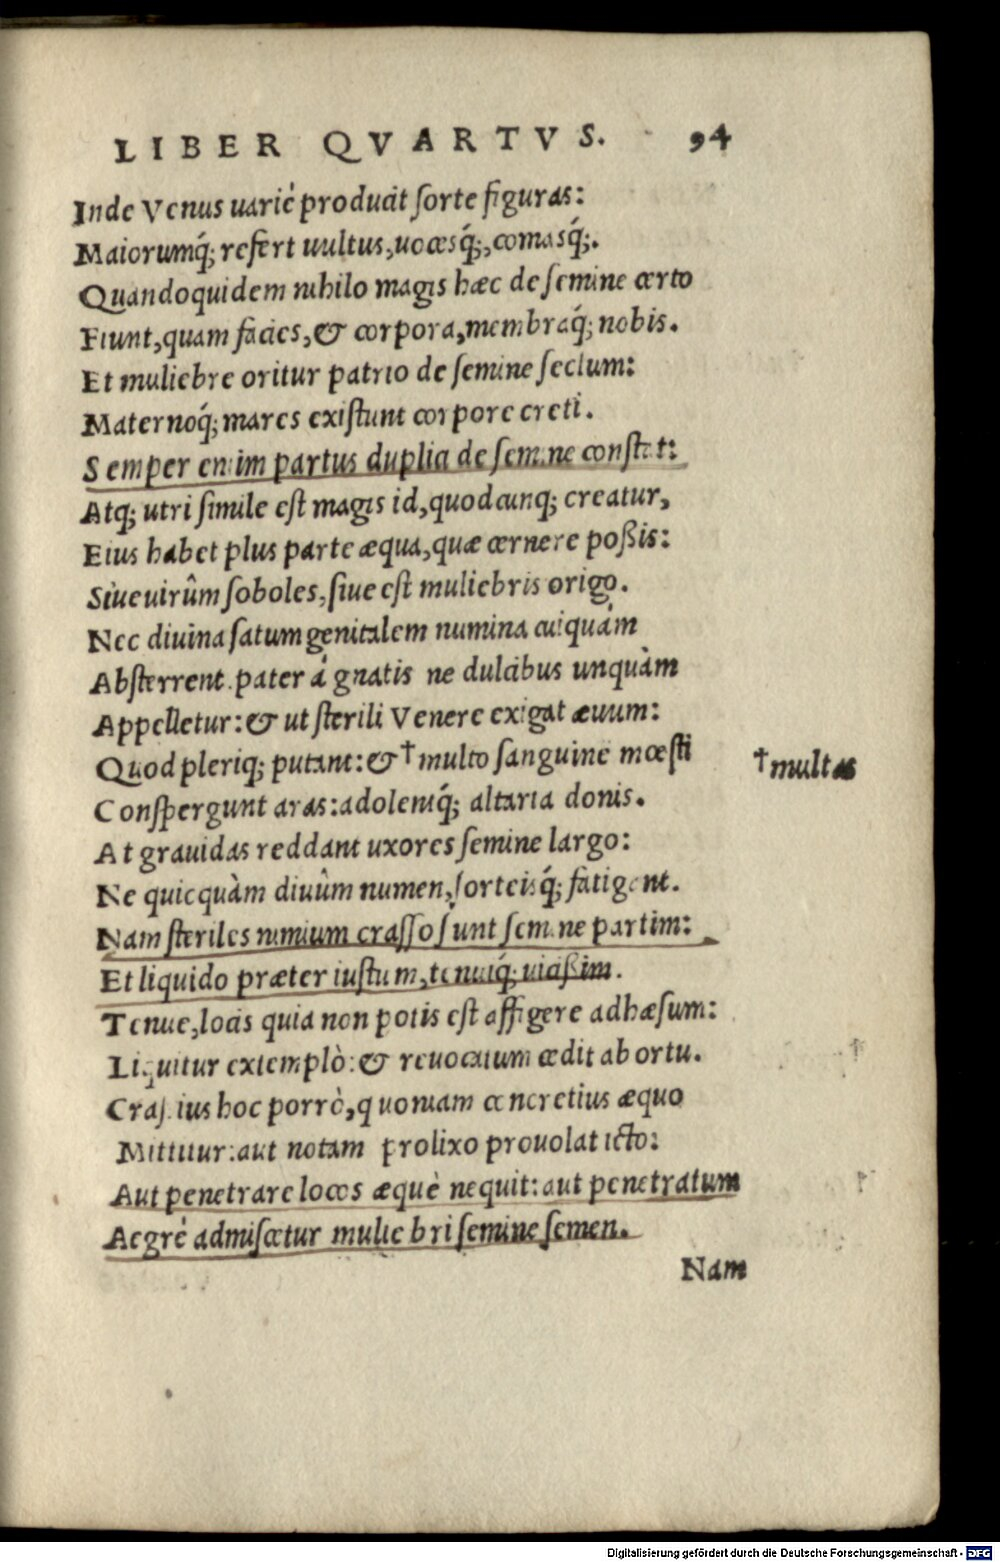 LIBER QVARTVS. 94
Inde Venus uariè producit ſorte figuras:
Maiorumq́; refert uultus, uocesq́;, comasq́;.
Quandoquidem nihilo magis hæc de ſemine certo
Fiunt, quam facies, & corpora, membraq́; nobis.
Et muliebre oritur patrio de ſemine ſeclum:
Maternoq́; mares exiſtunt corpore creti.
Semper enim partus duplici de ſemine conſtat:
Atq; utri ſimile eſt magis id, quodcunq; creatur,
Eius habet plus parte æqua, quæ cernere poßis:
Siue uirûm ſoboles, ſiue eſt muliebris origo.
Nec diuina ſatum genitalem numina cuiquàm
Abſterrent. pater á gnatis ne dulcibus unquàm
Appelletur: & ut ſterili Venere exigat æuum:
Quod pleriq; putant: & †multo ſanguine mœſti
†multas
Conſpergunt aras: adolentq́; altaria donis.
At grauidas reddant uxores ſemine largo:
Ne quicquàm diuûm numen, ſorteisq́; fatigent.
Nam ſteriles nimium craſſo ſunt ſemine partim:
Et liquido præter iuſtum, tenuiq́; uicißim.
Tenue, locis quia non potis eſt affigere adhæſum:
Liquitur extemplò: & reuocatum cedit ab ortu.
Craſſius hoc porrò, quoniam concretius æquo
Mittitur: aut notam prolixo prouolat icto:
Aut penetrare locos æquè nequit: aut penetratum
Aegrè admiſcetur muliebri ſemine ſemen.
Nam
Digitalisierung gefördert durch die Deutsche Forschungsgemeinschaft - DFG